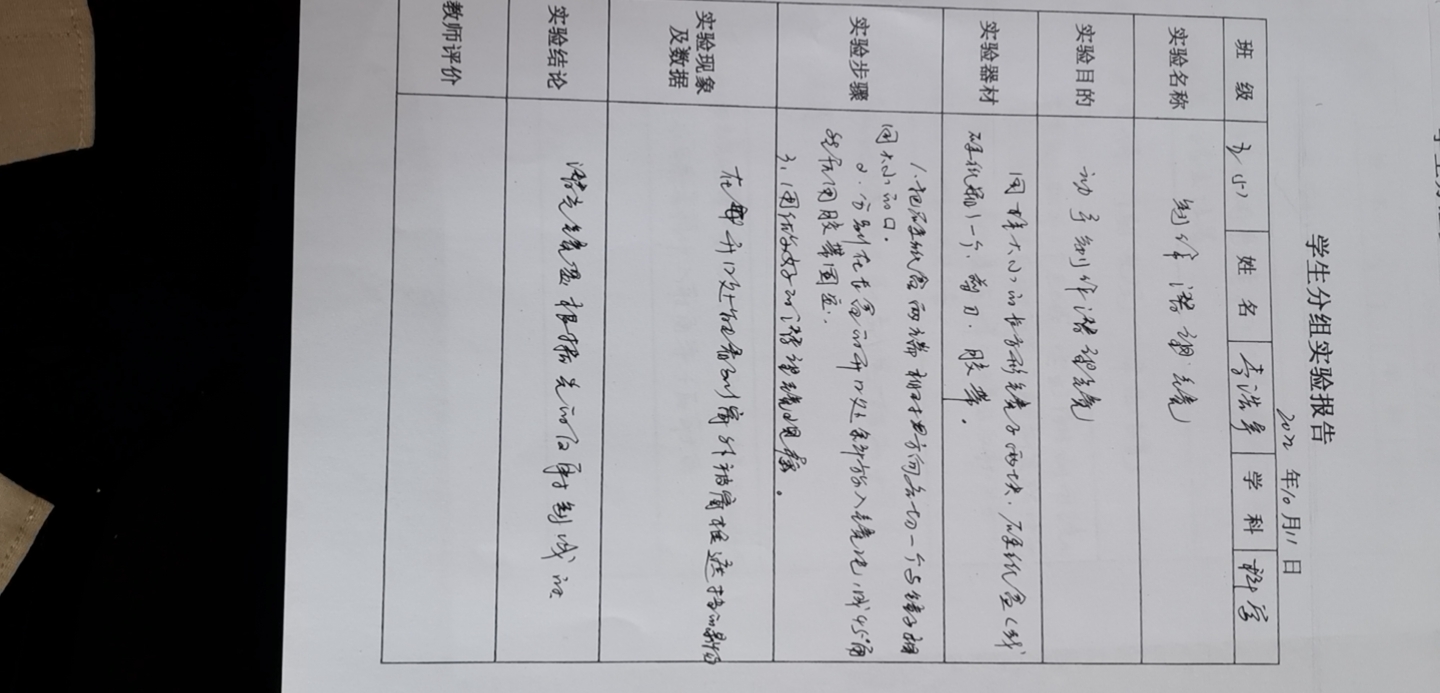 学生分组实验报告
2022年10月11日
班级 姓名 李浩 学科 科学
实验名称 制作潜望镜
实验目的 动手制作潜望镜
实验器材 同样大小的长方形镜子两块、硬纸盒（或
硬纸筒）一个、剪刀、胶带。
实验步骤 1.把硬纸盒两端相对方向各切一个与镜子相
同大小的口。
2.分别在长盒的开口处斜放入镜片，成45°角
然后用胶带固定。
3.用做好的潜望镜观察。
实验现象及数据 在开口处上能看到窗外被窗框遮挡的
实验结论 潜望镜是根据光的反射制成的
教师评价